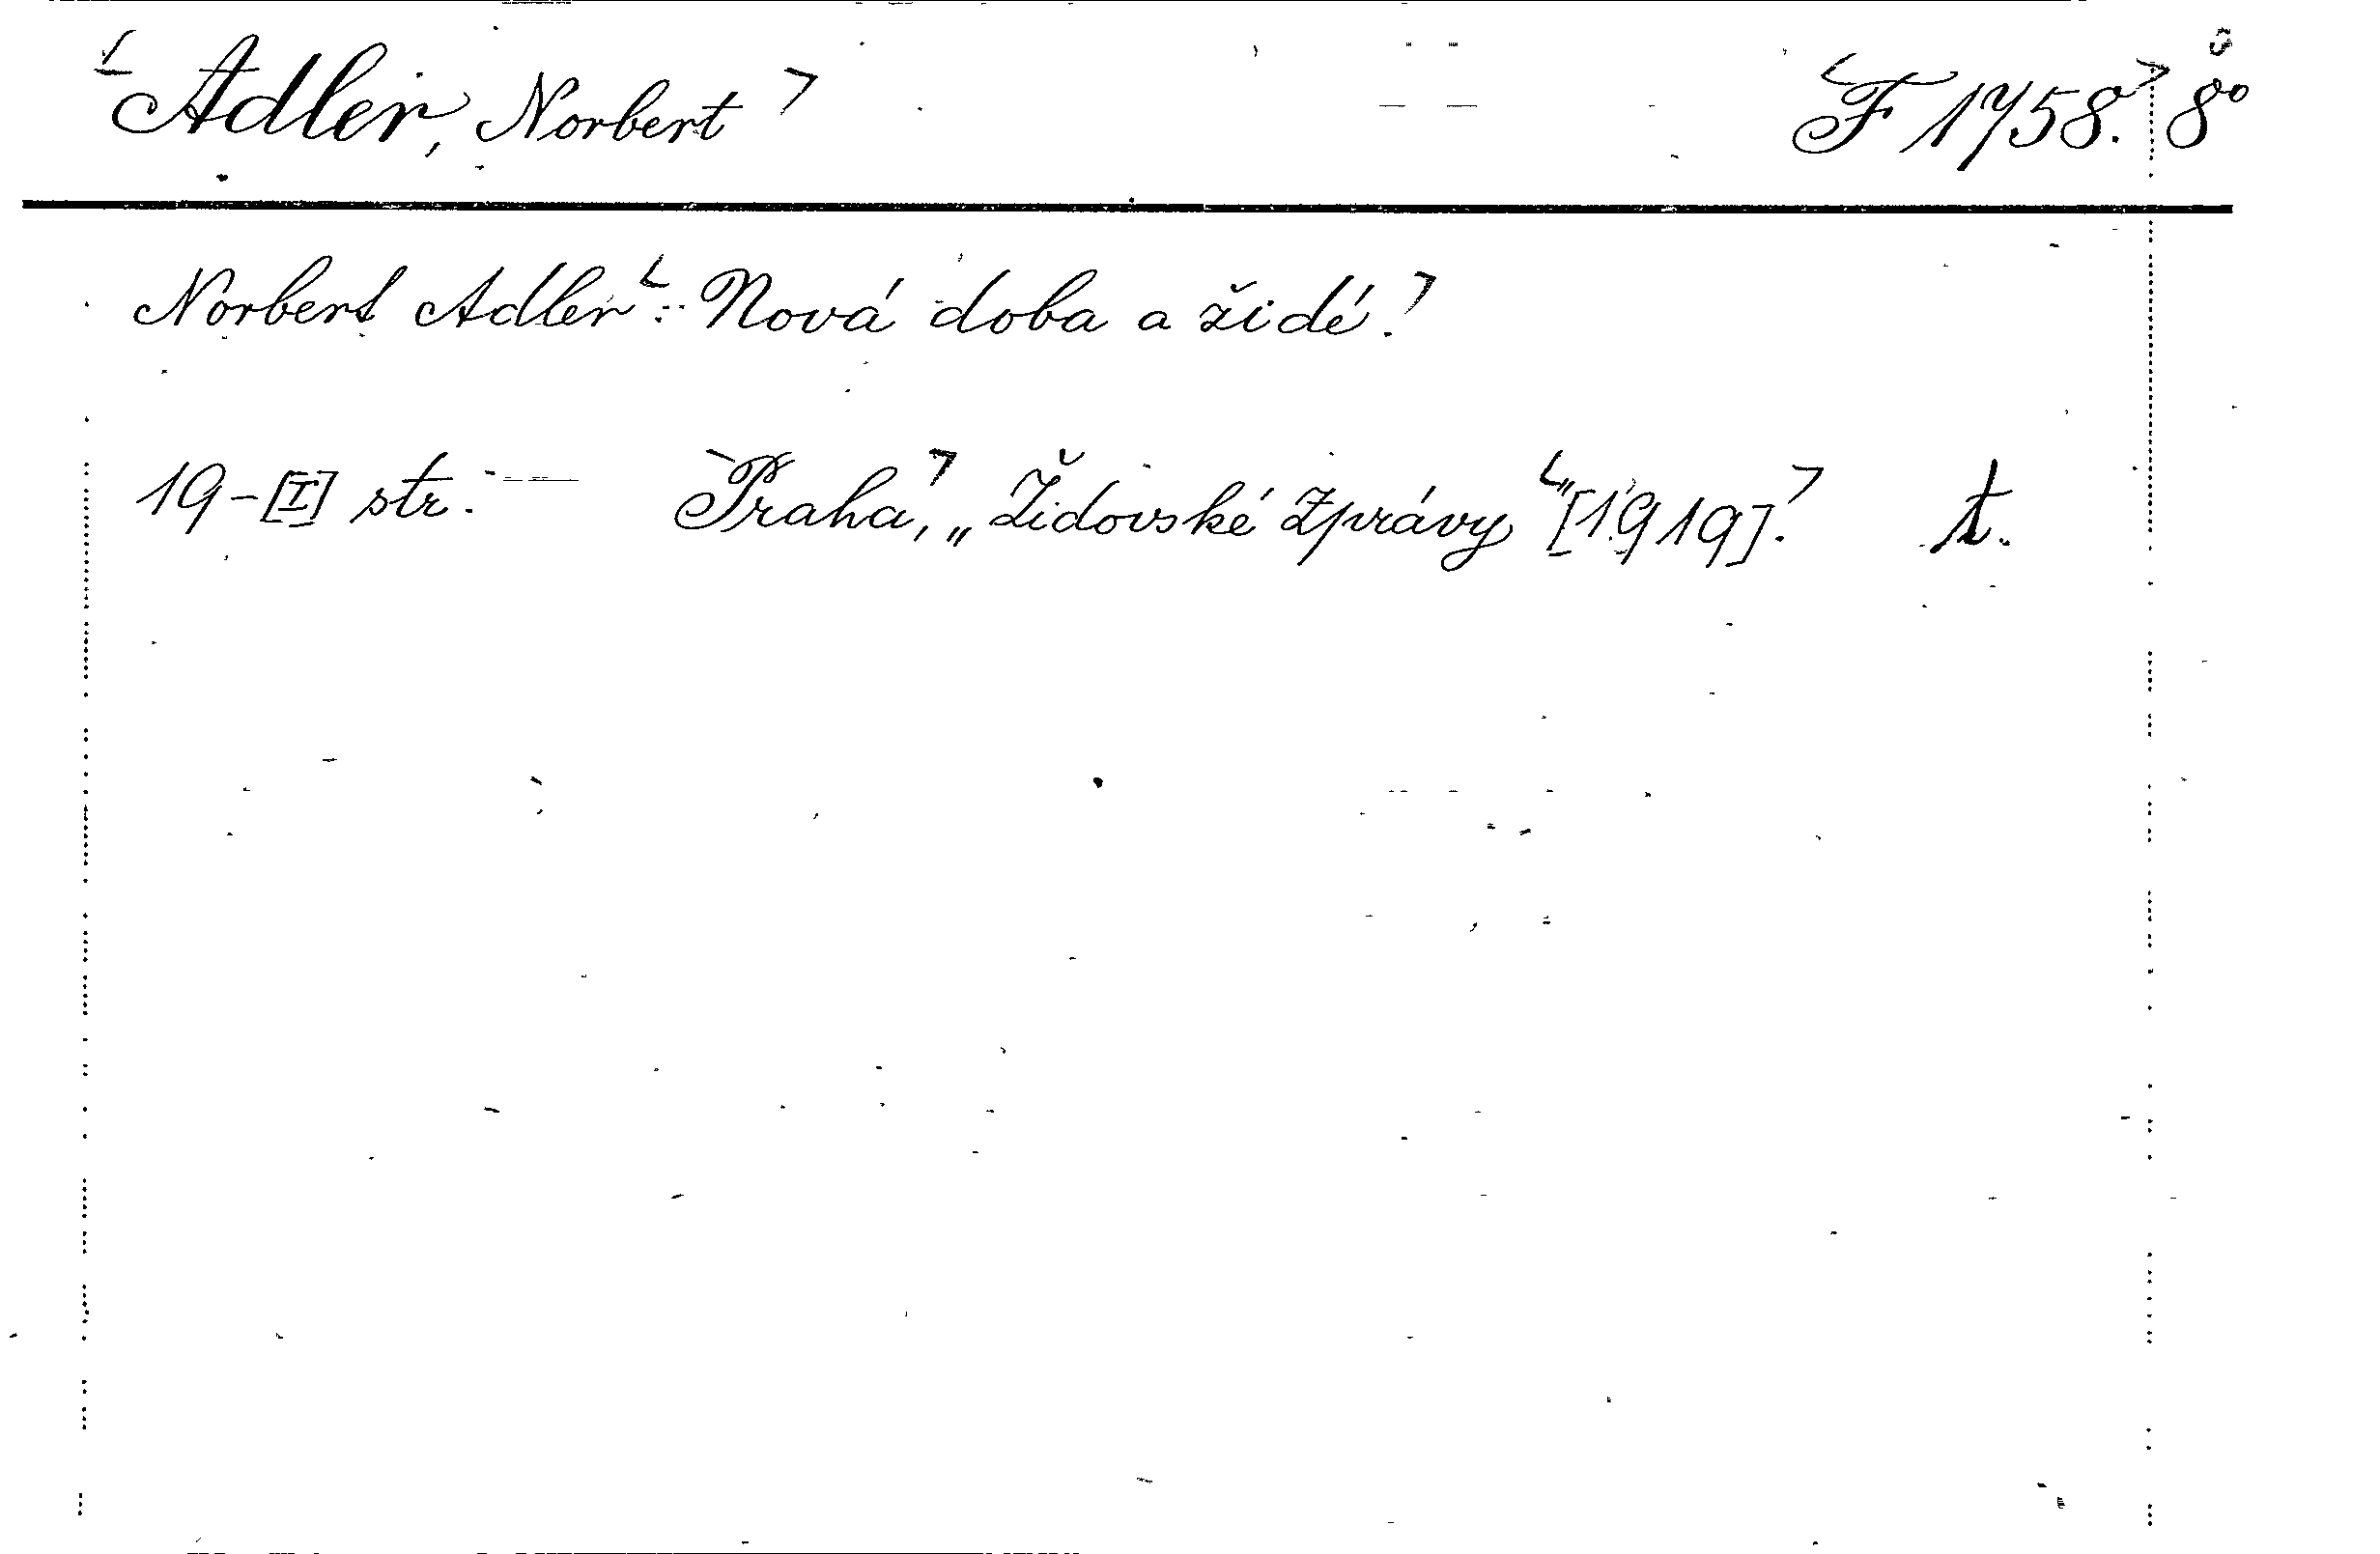 Adler, Norbert F 1758. 8°
Norbert Adler: Nová doba a židé.
19-[I] str. — Praha, „Židovské Zprávy" [1919]. t.